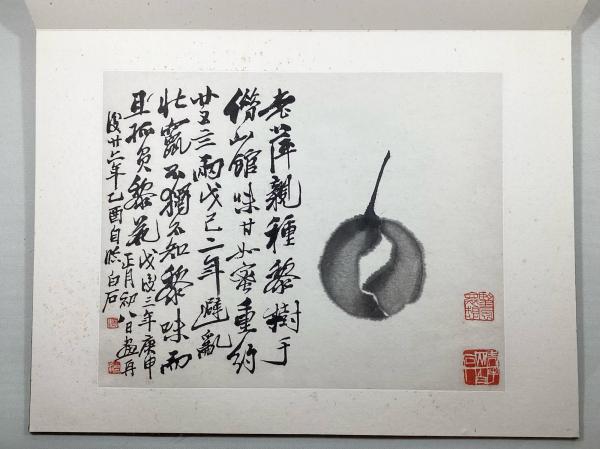 老萍親種黎樹于
借山館味甘如蜜重約
廿又三兩戊己二年避亂
北竄不獨不知黎味而
且孤負黎花戊後三年庚申
正月初八日畫丹
後廿六年乙酉自昣白石